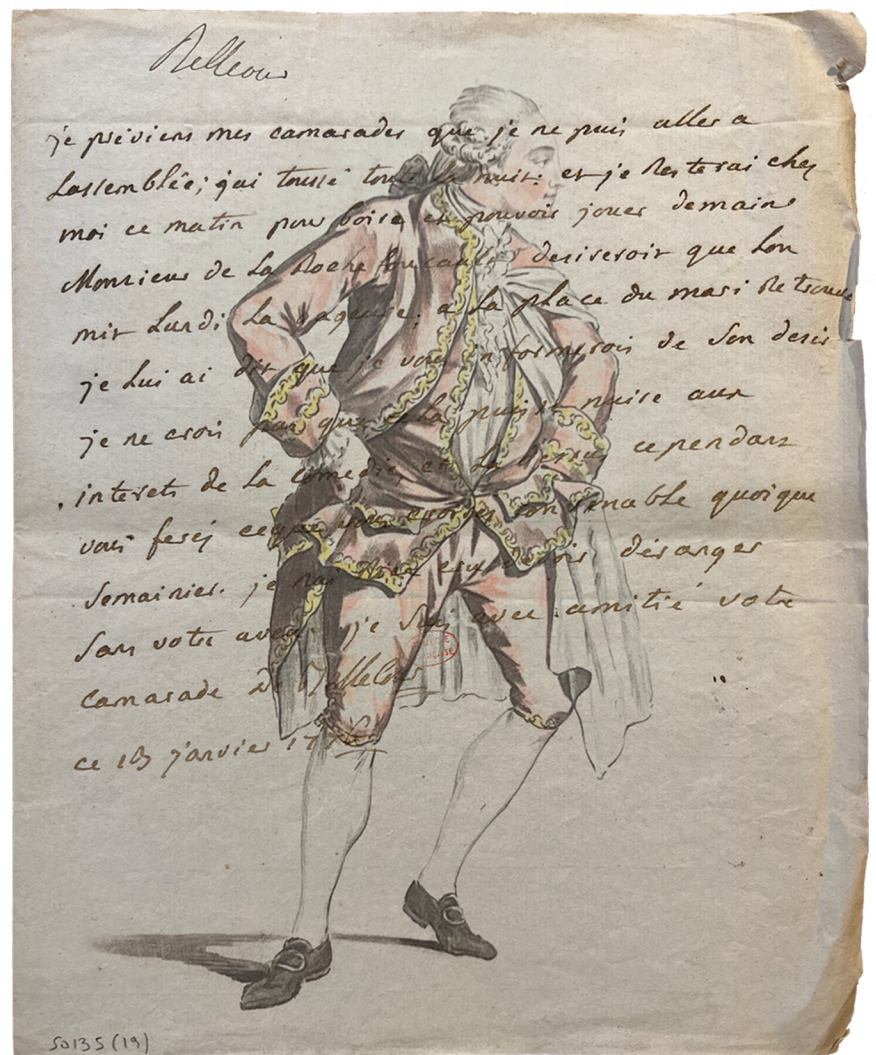 Bellecour
je préviens mes camarades que je ne puis aller a
Lassemblée; j'ai toussé toute la nuit. et je Resterai chez
moi ce matin pour boire et pouvoir jouer demain
Monsieur de La Rochefoucault desireroit que Lon
mit Lundi La gageure; a La place du mari Retrouvé
je Lui ai dit que je vous informerois de Son desir
je ne crois pas que cela puisse nuire aux
interets de La comedie, et La cependant
vous ferez ceque vous croirez convenable quoique
Semainier. je nai rien cru devoir déranger
Sans votre aveu. je Suis avec amitié votre
camarade De Bellecour
ce 13 janvier
50135 (19)